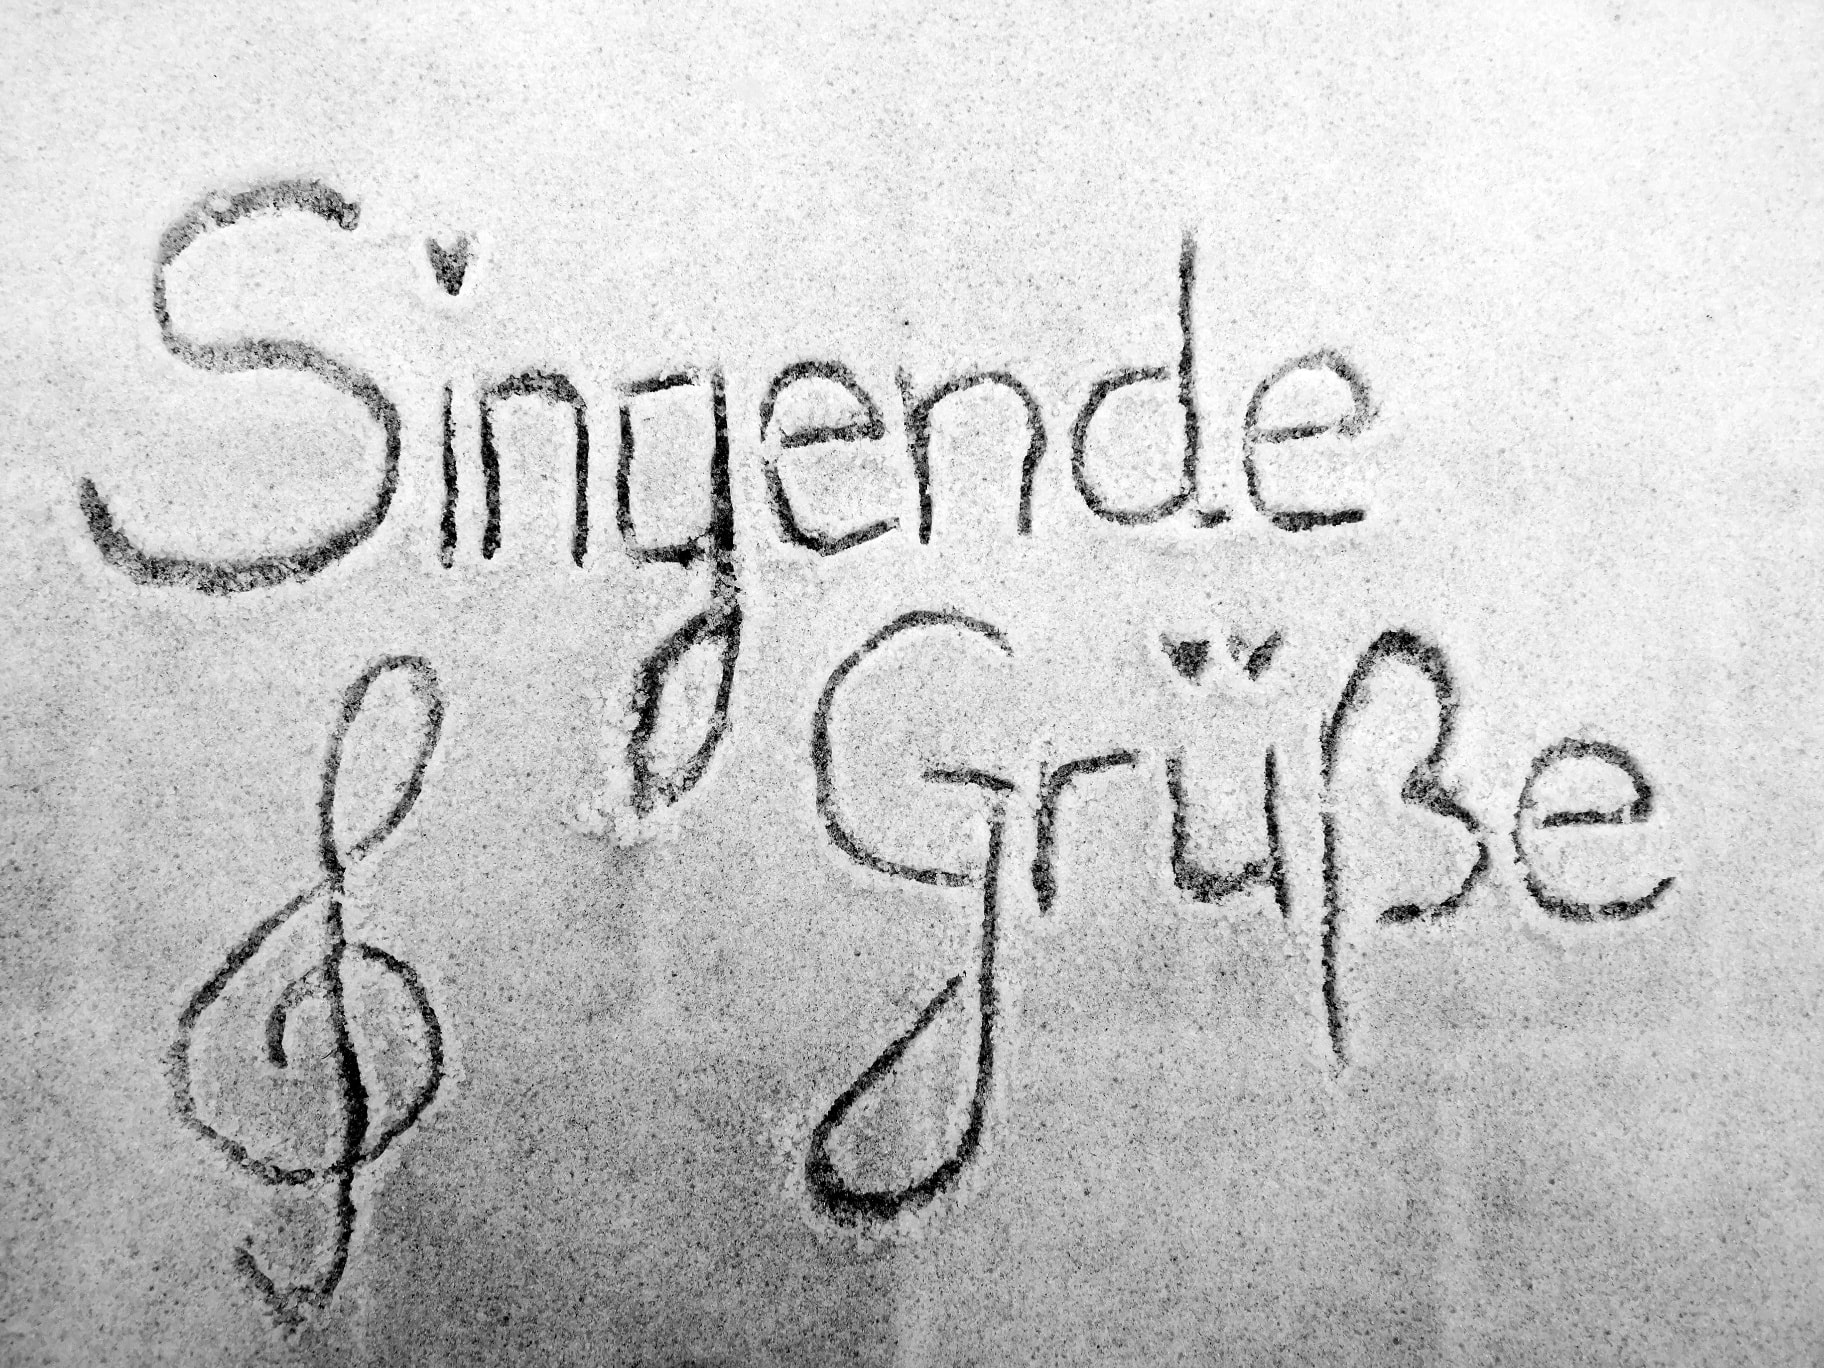 Singende
Grüße